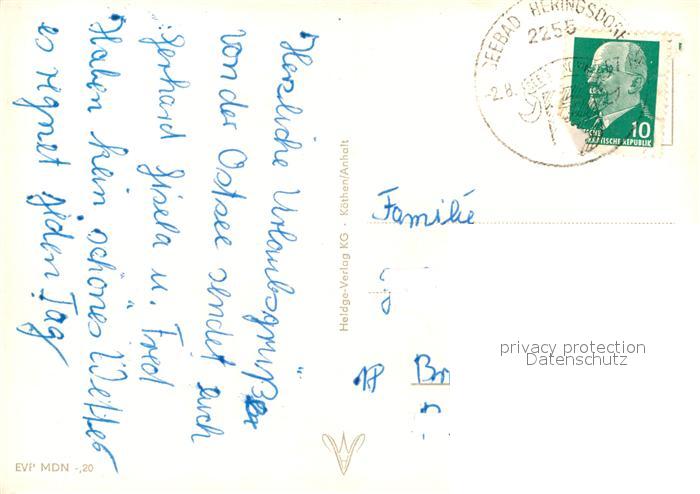 Herzliche Urlaubsgrüße
von der Ostsee sendet euch
Gerhard Gisela u. Fred
Haben kein schönes Wetter
es regnet jeden Tag
EVP MDN -,20
Heldge-Verlag KG · Köthen/Anhalt
SEEBAD HERINGSDORF
2255
-2.8.
10
ATISCHE REPUBLIK
Familie
Br
privacy protection
Datenschutz